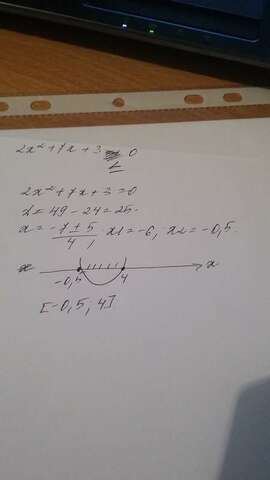 2x²+7x+3 ≤ 0
2x²+7x+3=0
D=49-24=25.
x=-7±5/4, x1=-6, x2=-0,5.
-0,5 4 x
[-0,5; 4]